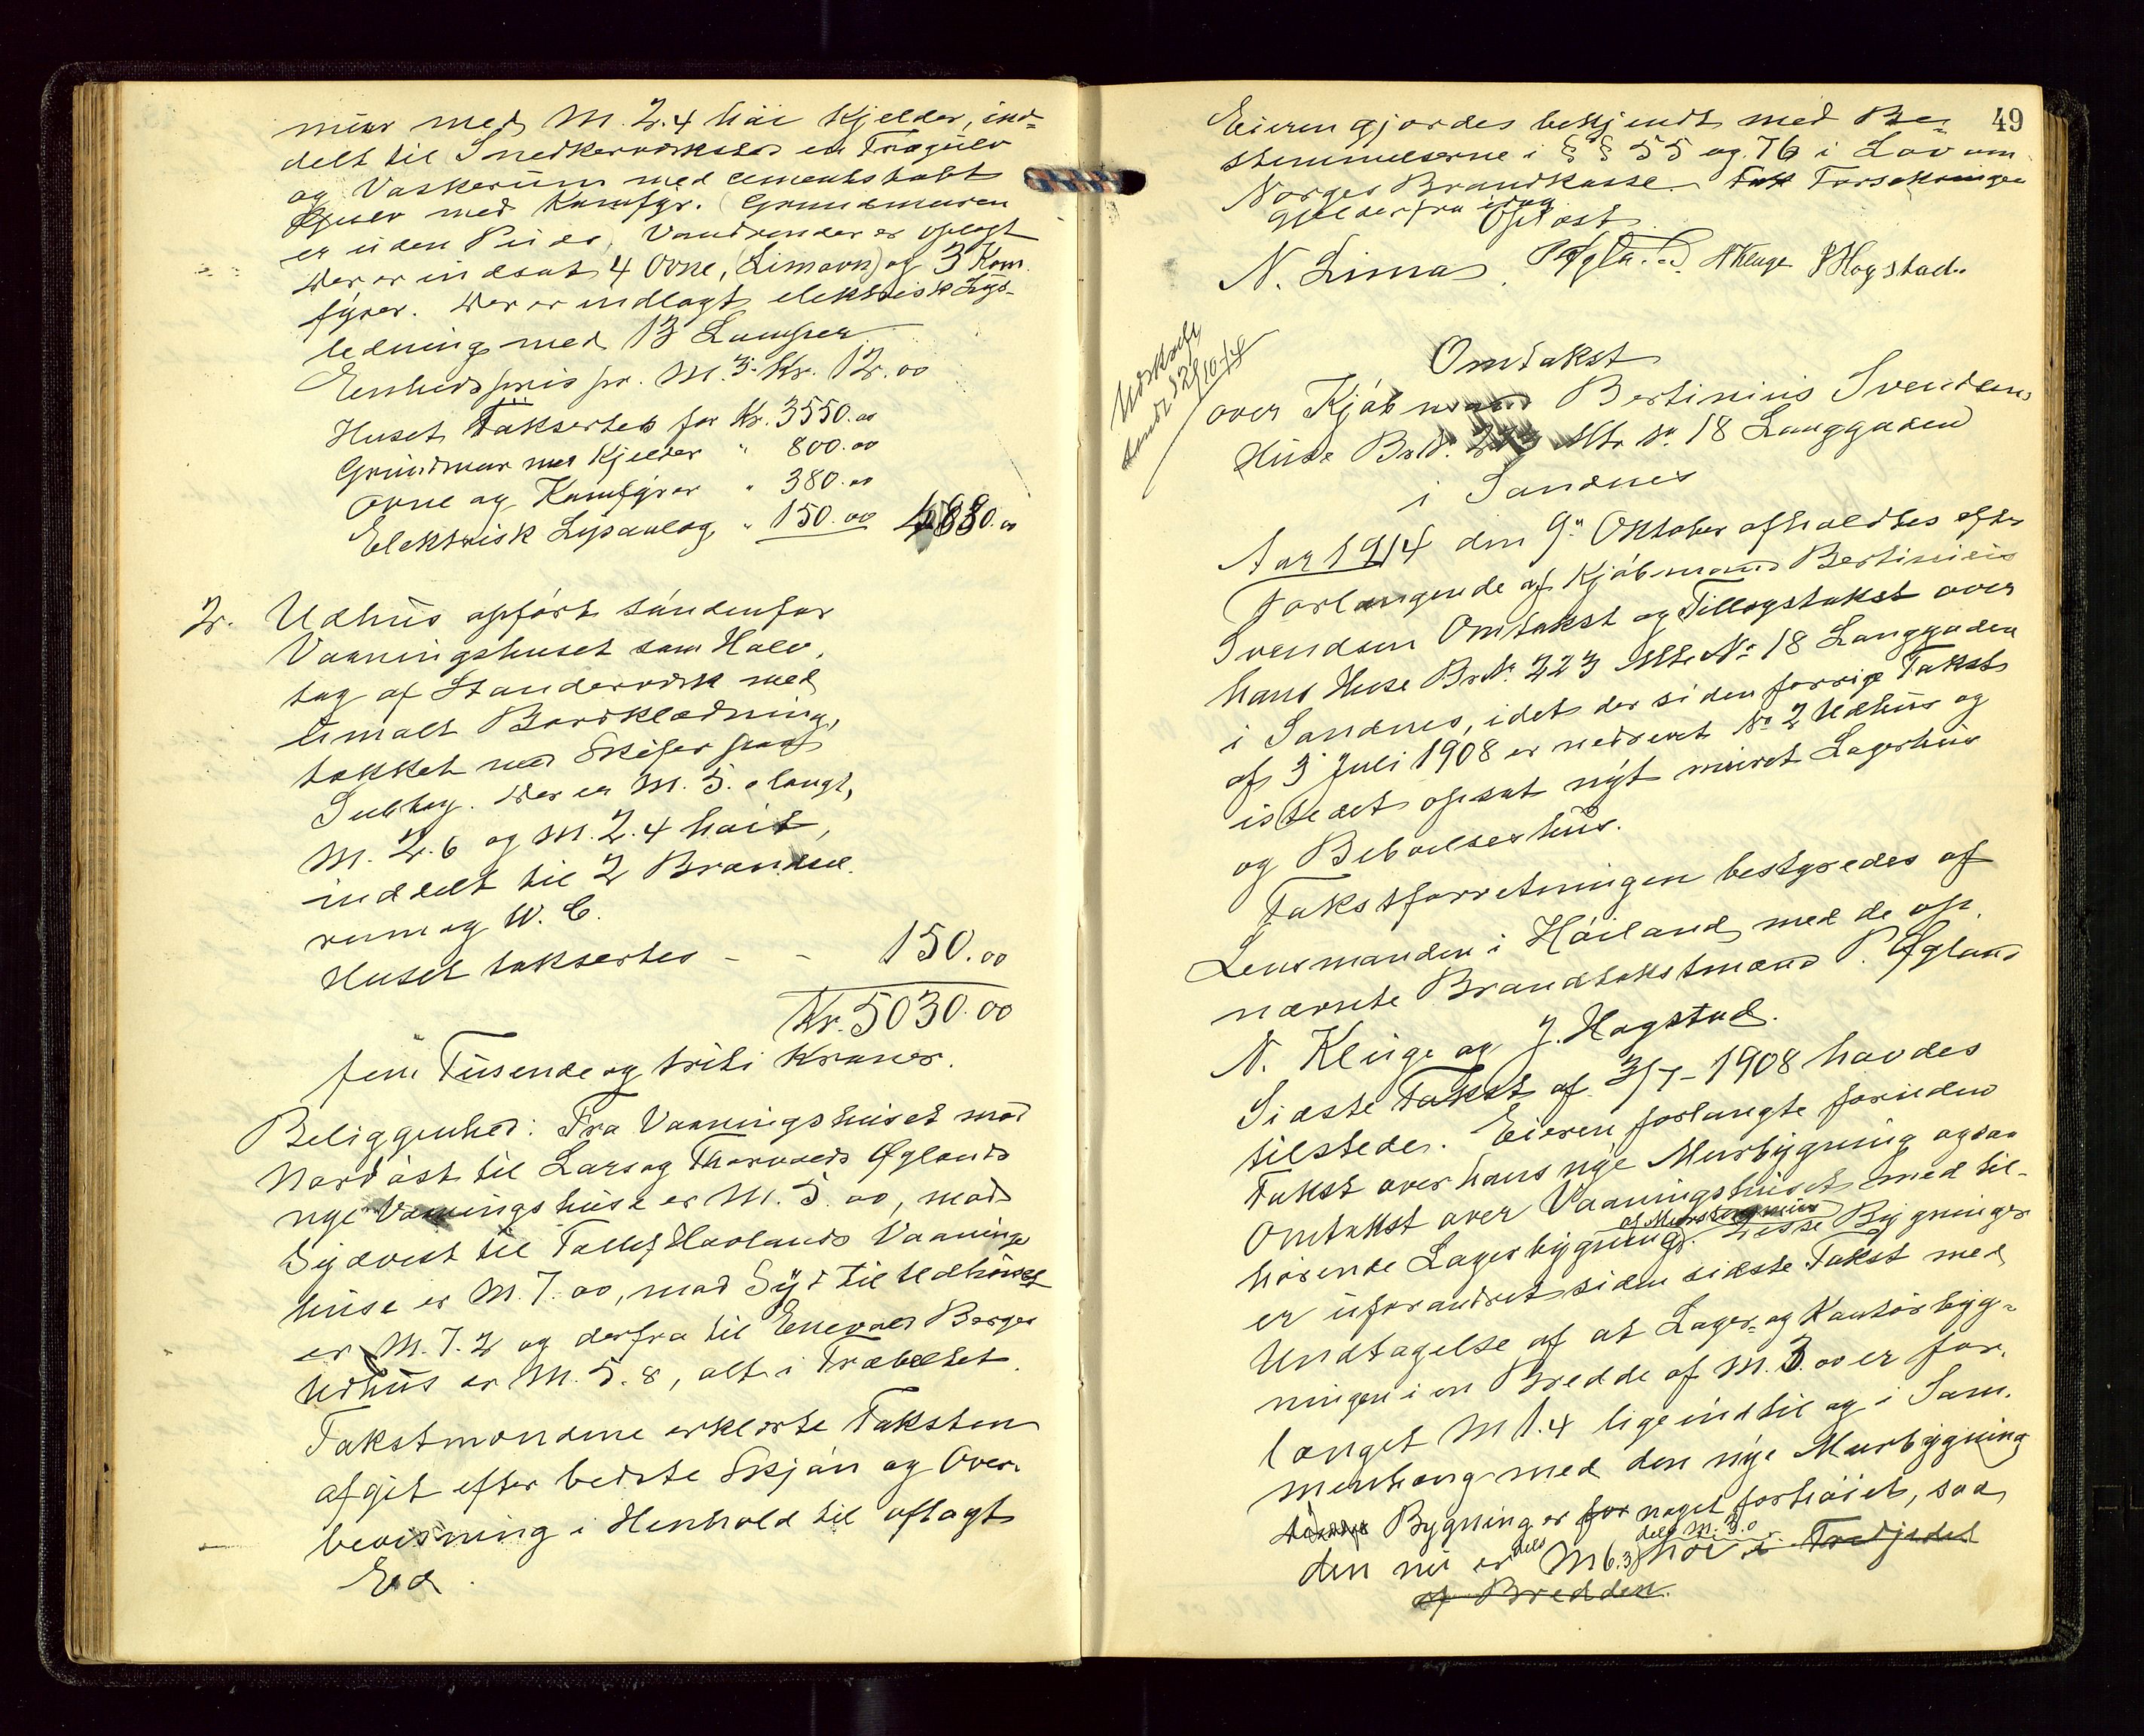 mur med M. 2.4 höi Kjelder, ind-
delt til Snedkerværksted en Trægulv
og Vaskerum med cementstøbt
Gulv med Komfyr. (Grundmuren
er uden Puds). Vandrender er oplagt
Der er indsat 4 Ovne, (Limovn) og 3 Kom.
fyrer. Der er indlagt elektrisk Lys-
ledning med 13 Lamper
Enhedspris pr. M.3. Kr. 12.00
Huset Taksertes for Kr. 3550.00
Grundmur med Kjelder " 800.00
Ovne og Komfyrer " 380.00
Elektrisk Lysanlæg " 150.00 4880.00
2. Udhus opført söndenfor
Vaaningshuset som Halv.
tag af Standerværk med
umalt Bordklædning,
tækket med Skifer paa
Sultag. Der er M. 5.0 langt,
M. 2.6 og M. 2.4 höit,
inddelt til 2 Brændsel.
rum og W. C.
Huset taksertes - - 150.00
Kr. 5030.00
fem Tusende og triti Kroner.
Beliggenhed: Fra Vaaningshuset mod
Nordöst til Lars og Thorvald Øglands
nye Vaaningshuse er M. 5.00, mod
Sydvest til Tollef Havlands Vaanings
huse er M. 7.00, mod Syd til Udhuset
er M. 7.2 og derfra til Enevald Berges
Udhus er M. 5.8, alt i Træbeltet.
Takstmændene erklærte Taksten
afgit efter bedste Skjøn og Over.
bevisning i Henhold til aflagt
Ed.
49
Eieren gjordes bekjendt med Be-
stemmelserne i § § 55 og 76 i Lov om
Norges Brandkasse. Tak Forsikringen
gjælder fra idag
Oplæst
N. Lima. P. Øgland N Kluge J Hogstad.
Udskrift
sendt 28/10-14
Omtakst
over Kjöbmand Bertinius Svendsens
Huse Br. N. 223 Mtr. No. 18 Langgaden
i Sandnes
Aar 1914 den 9. Oktober afholdtes efter
Forlangende af Kjöbmand Bertinius
Svendsen Omtakst og Tillægstakst over
hans Huse Br. N. 223 Mtr. No. 18 Langgaden
i Sandnes, idet der siden forrige Takst
af 3 Juli 1908 er nedrevet No 2 Udhus og
istedet opsat nyt muret Lagerhus
og Beboelseshus.
Takstforretningen bestyredes af
Lensmanden i Höiland med de op.
nævnte Brandtakstmænd P. Øgland
N. Kluge og J. Hogstad.
Sidste Takst af 3/7-1908 havdes
tilstede. Eieren forlangte foruden
Takst over hans nye Murbygning ogsaa
Omtakst over Vaaningshuset med til-
hørende Lagerbygning. Disse Bygninger
er uforandret siden sidste Takst med
Undtagelse af at Lager- og Kontorbyg-
ningen i en Bredde af M. 3.00 er for.
længet M 1.4 lige indtil og i Sam.
menhæng med den nye Murbygning
Bygning er for noget forhöiet, saa
den nu er dels M 6.3 dels M. 3.0 höi i Tredjedel
af Bredden.